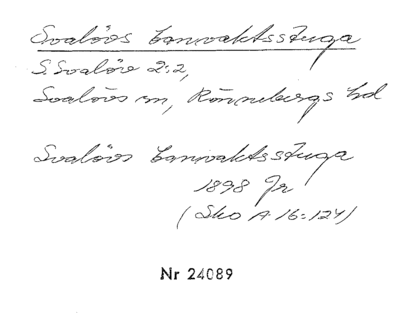 Svalövs banvaktsstuga
S. Svalöv 2:2,
Svalövs sn, Rönnebergs hd
Svalövs banvaktsstuga
1898 Jr
(Sko A 16:124)
Nr 24089